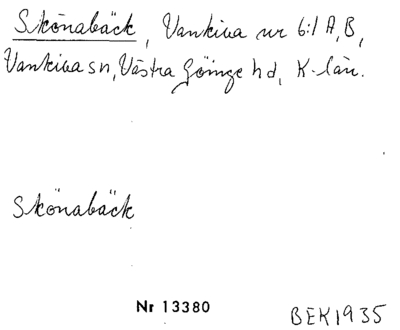 Skönabäck, Vankiva nr 6:1 A, B,
Vankiva sn, Västra Göinge hd, K-län.
Skönabäck
Nr 13380
BEK1935